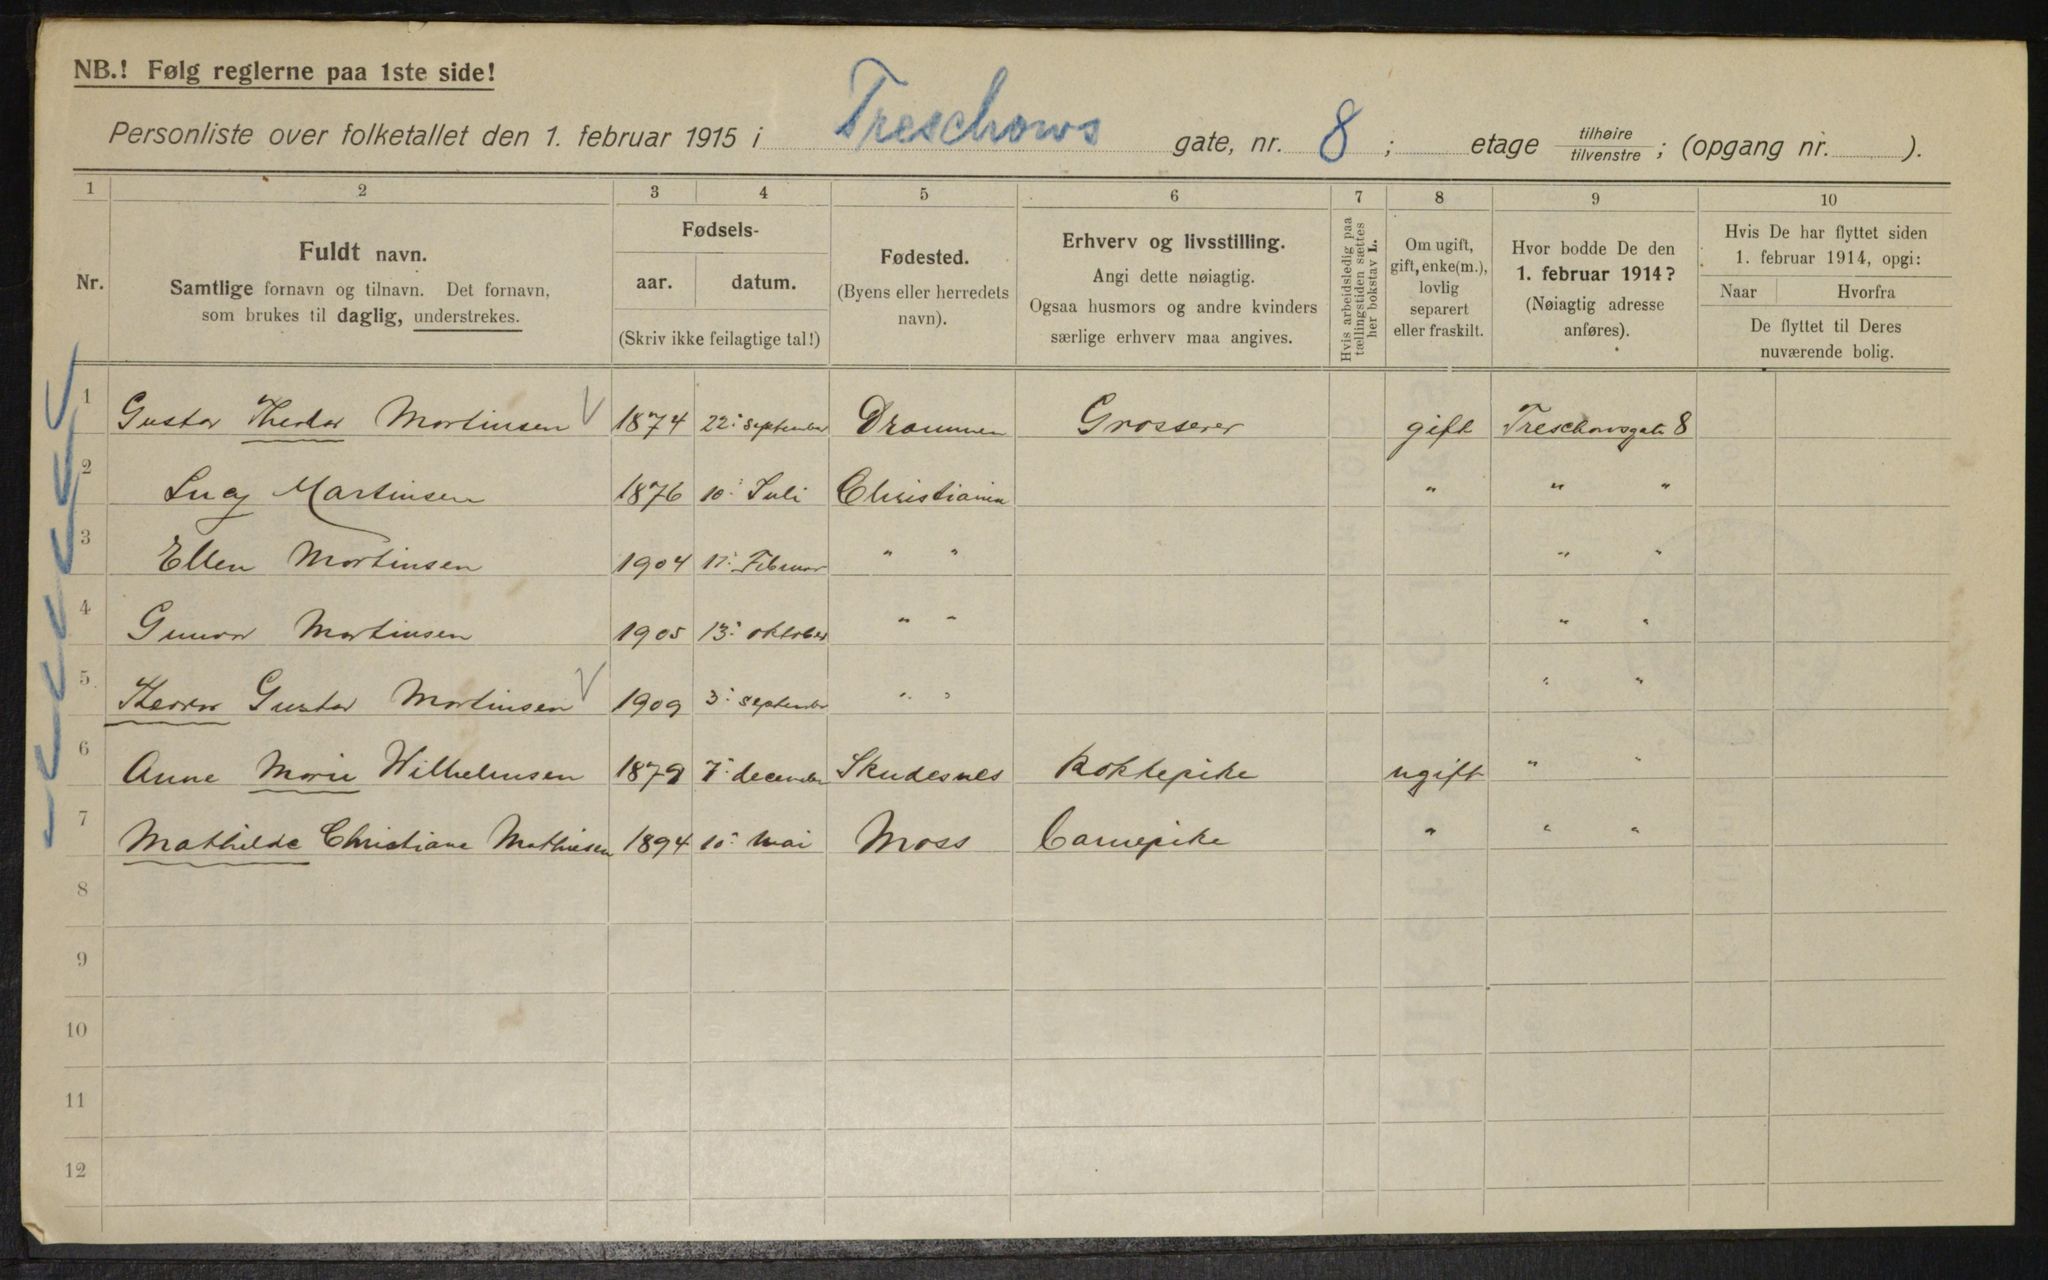 NB.! Følg reglerne paa 1ste side!
Personliste over folketallet den 1. februar 1915 i Treschows gate, nr. 8 ; etage tilhøire / tilvenstre ; (opgang nr. ).
1 2 3 4 5 6 7 8 9 10
Nr.
Fuldt navn.
Samtlige fornavn og tilnavn. Det fornavn,
som brukes til daglig, understrekes.
Fødsels-
aar. datum.
(Skriv ikke feilagtige tal!)
Fødested.
(Byens eller herredets
navn).
Erhverv og livsstilling.
Angi dette nøiagtig.
Ogsaa husmors og andre kvinders
særlige erhverv maa angives.
Hvis arbeidsledig paa
tællingstiden sættes
her bokstav L.
Om ugift,
gift, enke(m.),
lovlig
separert
eller fraskilt.
Hvor bodde De den
1. februar 1914?
(Nøiagtig adresse
anføres).
Hvis De har flyttet siden
1. februar 1914, opgi:
Naar Hvorfra
De flyttet til Deres
nuværende bolig.
1 Gustav Theodor Martinsen 1874 22. september Drammen Grosserer gift Treschowsgate 8
2 Lucy Martinsen 1876 10. Juli Christiania " " "
3 Ellen Martinsen 1904 Februar " " " "
4 Martinsen 1905 13. oktober " " " "
5 Gustav Martinsen 1909 3. september " " " "
6 Anne Marie Wilhelmsen 1879 7. december Skudesnes Kokkepike ugift " "
7 Mathilde Christiane Mathisen 1894 10. mai Moss Barnepike " " "
8
9
10
11
12